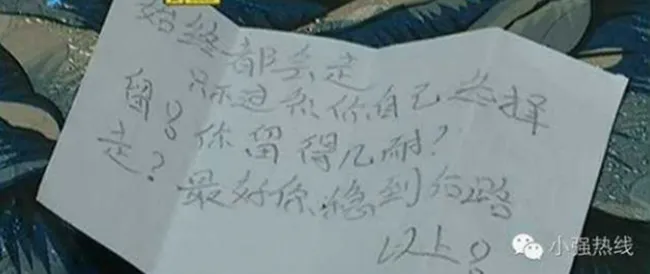 始终都会走
只不过系你自己选择
留？你留得几耐？
走？最好你稳到何路
以上。
小强热线